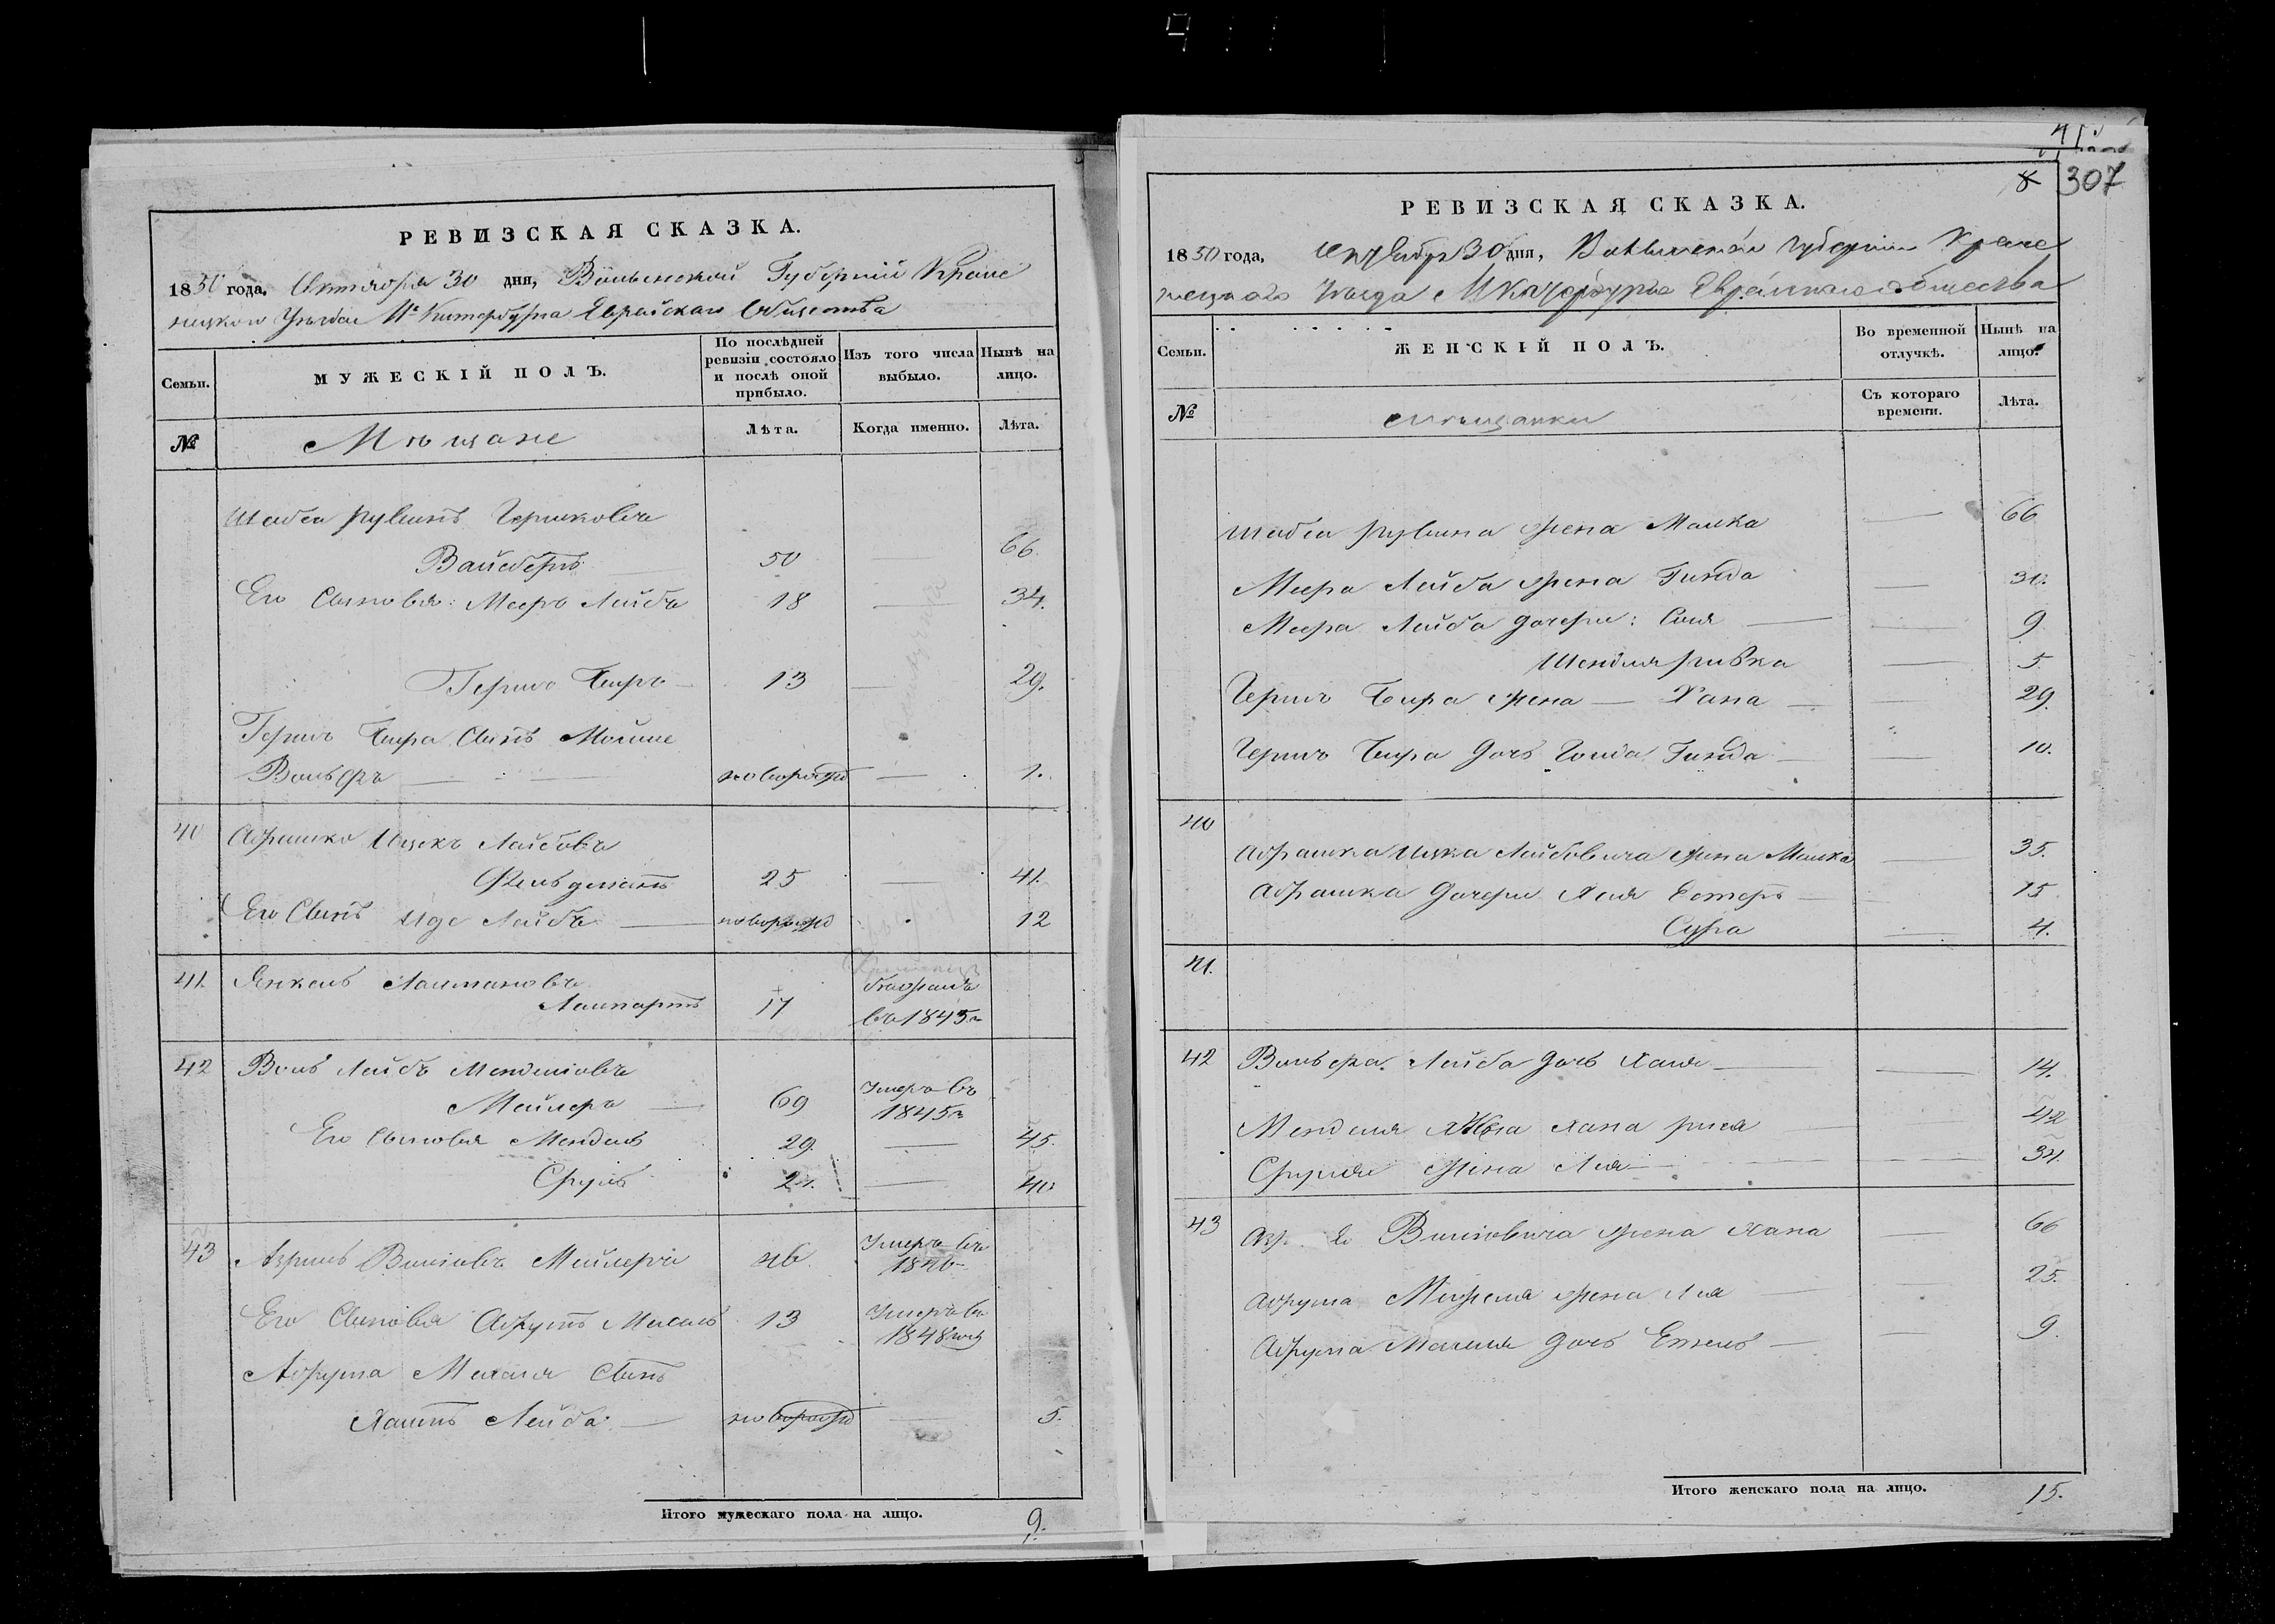 РЕВИЗСКАЯ СКАЗКА.
1850 года, Октября 30 дня, Волынской Губерніи Креме
нецкого Уезда М. Китербурга Еврейскаго Общества
Семьи.
МУЖЕСКІЙ ПОЛЪ.
По послѣдней ревизіи состояло и послѣ оной прибыло.
Изъ того числа выбыло.
Нынѣ на лицо.
№
Мѣщане
Лѣта.
Когда именно.
Лѣта.
Шабса Рувинъ Гершковъ
Вайсбергъ 50 — 66.
Его Сыновья: Мееръ Лейбъ 18 — 34.
Гершъ Беръ 13 — 29.
Гершъ Бера Сынъ Мошие
Вольфъ — новорожд — 1.
40 Абрашко Ицекъ Лейбовъ
Фельдманъ 25 — 41.
Его Сынъ Иде Лейбъ — новорожд 12
41. Янкель Лашмановъ
17 въ 1845
42 Волъ Лейбъ Менделіовъ
Мейлеръ — 69 Умеръ въ 1845
Его Сыновья Мендель 29. — 45.
Сруль 24. — 40
43 Азриль Волковъ Мейлеръ 46 Умеръ въ 1846
Его Сыновья Абрумъ Михель 13 Умеръ въ 1848
Абрума Михеля Сынъ
Хаимъ Лейба — новорожд — 5.
Итого мужескаго пола на лицо. 9.
307
РЕВИЗСКАЯ СКАЗКА.
1850 года, Октября 30 дня, Волынской губерніи Креме
нецкого Уезда М Катербурга Еврейскаго общества
Семьи.
ЖЕНСКІЙ ПОЛЪ.
Во временной отлучкѣ.
Нынѣ на лицо.
№
мѣщанки
Съ котораго времени.
Лѣта.
Шабса Рувина жена Малка — 66
Меера Лейба жена Гинда — 30.
Меера Лейба дочери: Сося — 9
Шендля Ривка — 5
Гершъ Бера жена — Хана — 29.
Гершъ Бера дочь Гинда — 10.
40
Абрашка Ицка Лейбовича жена Малка — 35.
Абрашка дочери Хая Естеръ — 15
Сура — 4.
41.
42 Вольфа Лейба дочь Хая — 14.
Менделя Жена Хана Рися 42
Сруля жена Лея — 34.
43 Азр Волковича жена Хана — 66
Абрума Михеля жена Лея — 25.
Абрума Михеля дочь — 9.
Итого женскаго пола на лицо. 15.